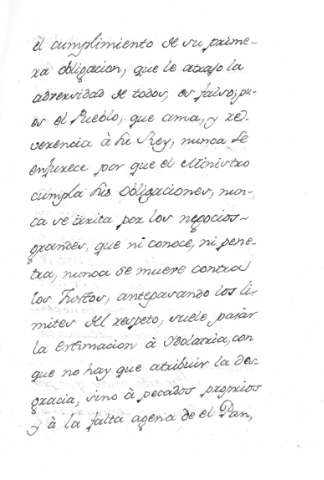 el cumplimiento de su prime-
ra obligacion, que le atrajo la
adversidad de todos, es falso; pu-
es el Pueblo, que ama, y re-
verencia à su Rey, nunca se
enfurece por que el Ministro
cumpla sus obligaciones, nun-
ca se irrita por los negocios
grandes, que ni conoce, ni pene-
tra, nunca se mueve contra
los Justos, antepasando los li-
mites del respeto, suele pasar
la estimacion à Idolatria, con
que no hay que atribuir la des-
gracia, sino à pecados proprios
y à la falta agena de el Pan,